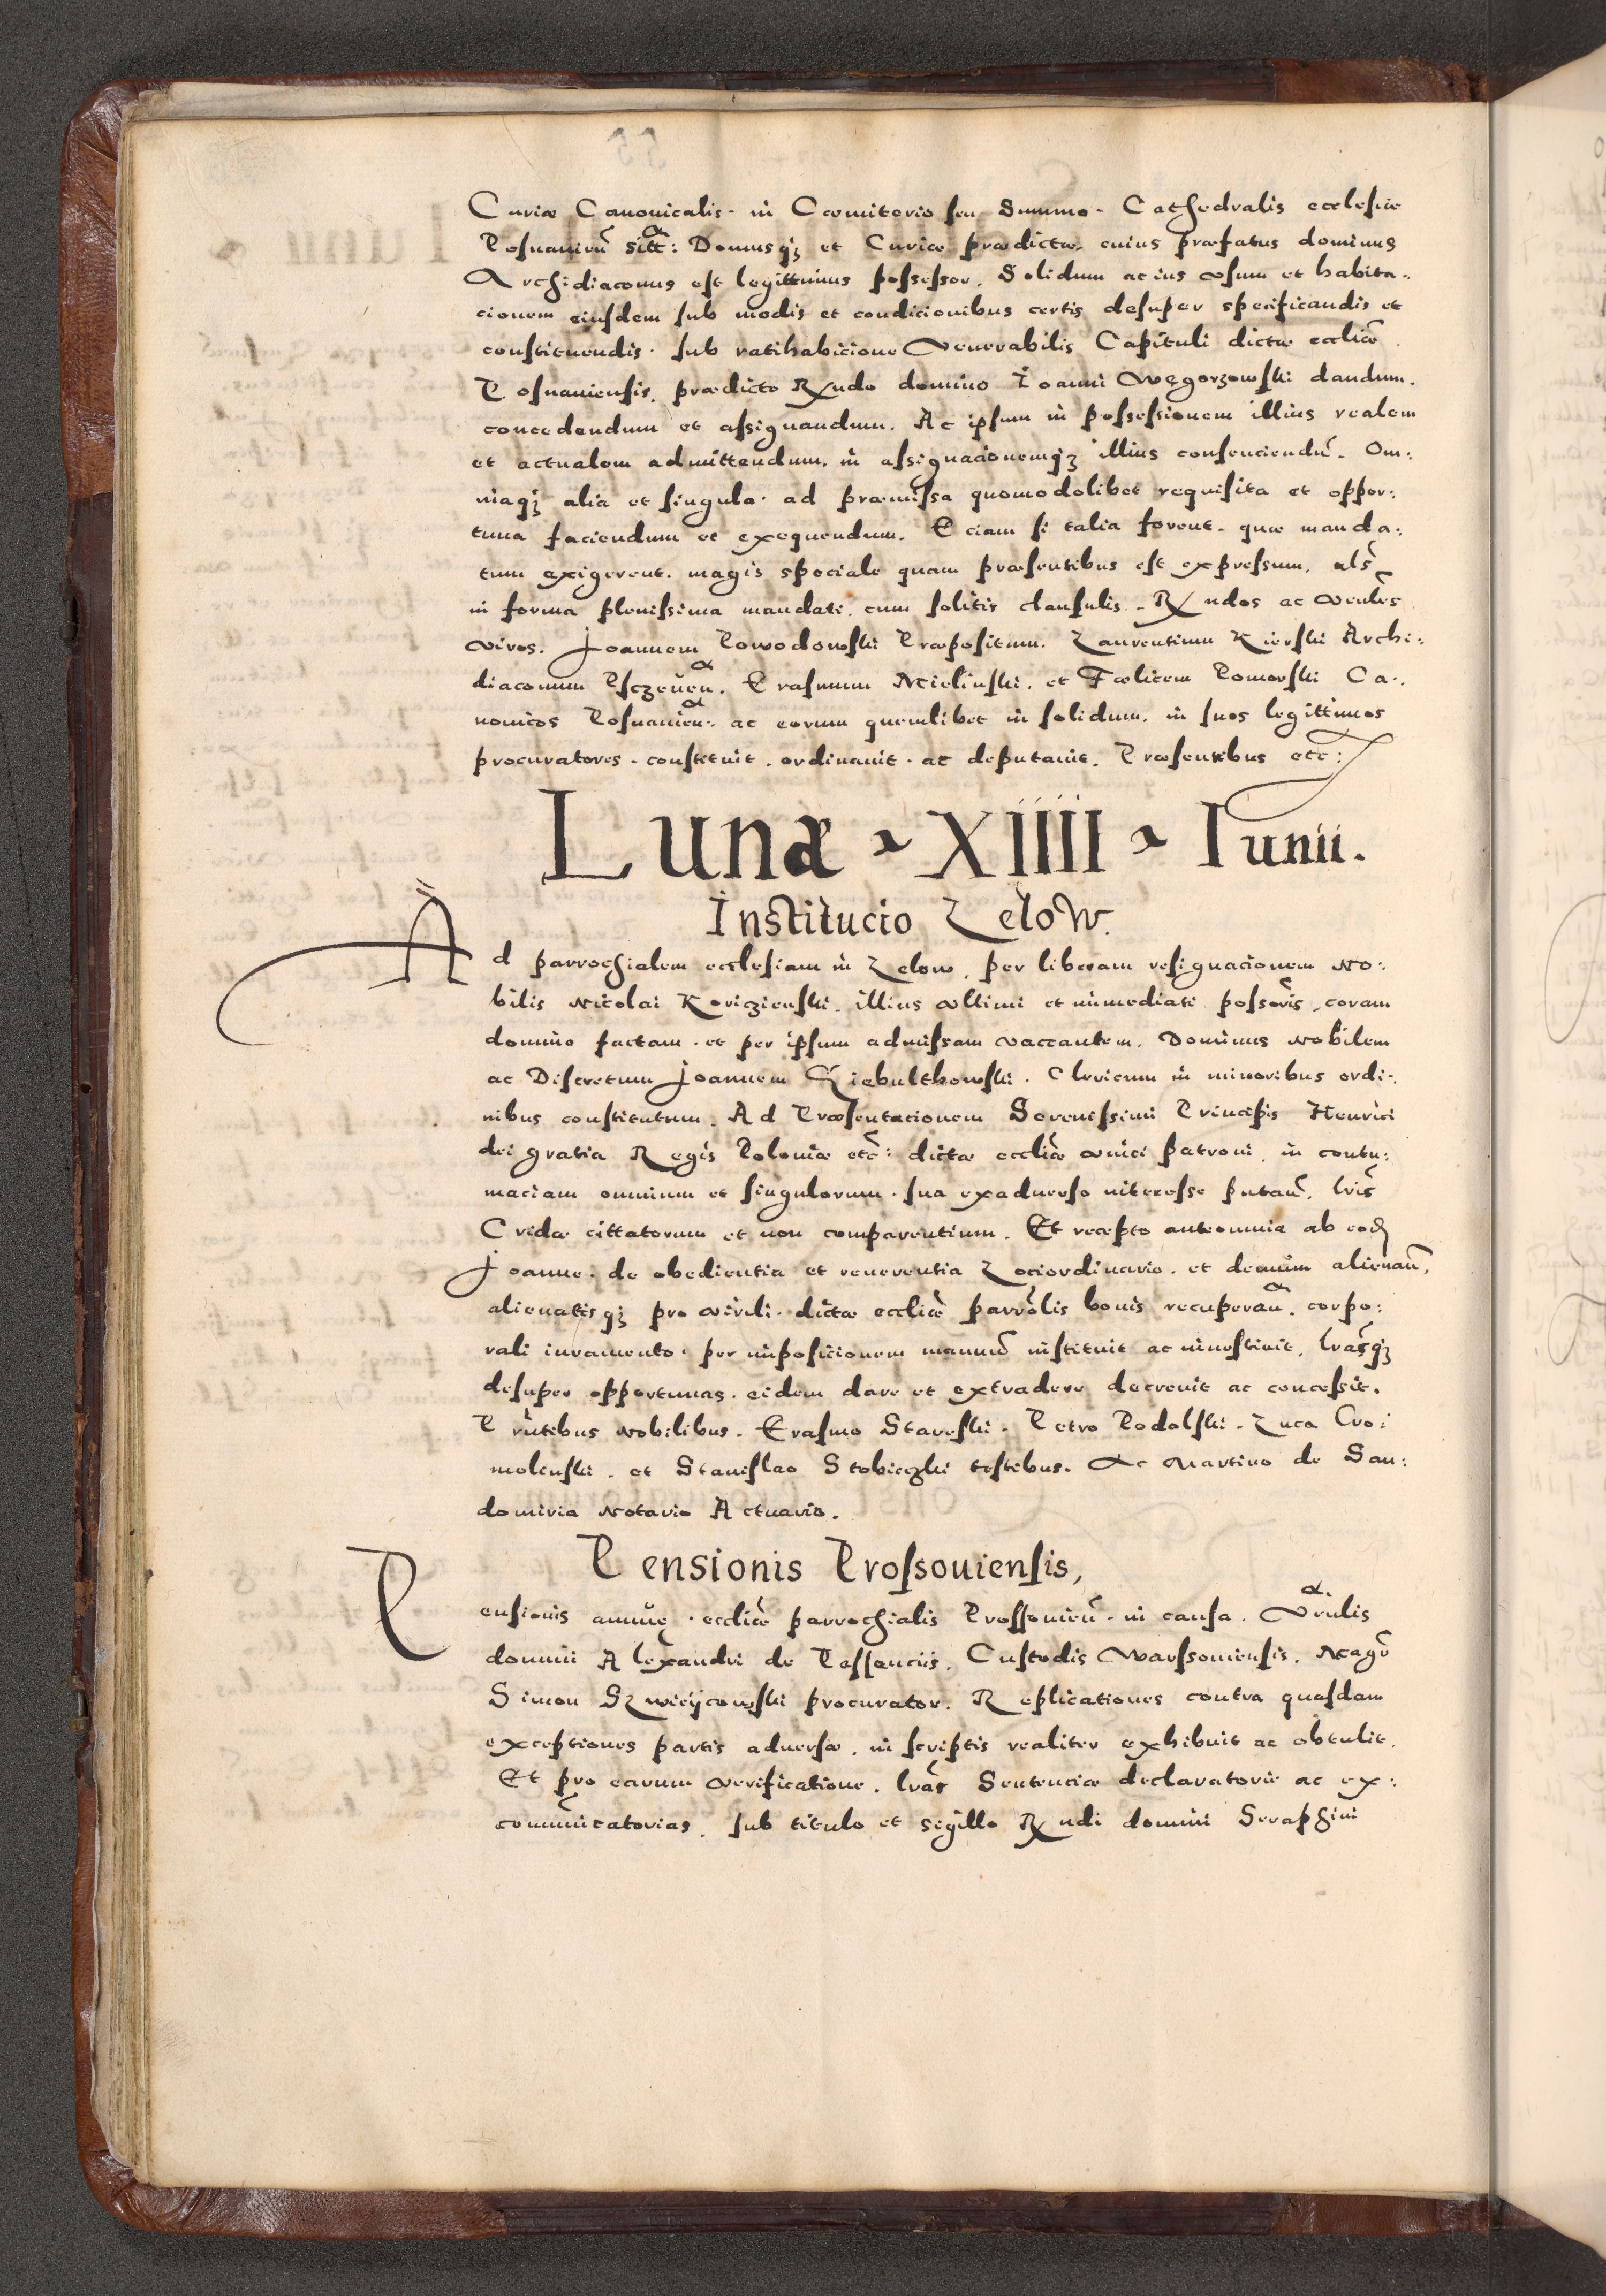 Curiæ Canonicalis. in Cæmiterio seu Summo. Cathedralis ecclesiæ
Posnanieñ sitt̃: Domusq₃ et Curiæ prædictæ. cuius præfatus dominus
Archidiaconus est legittimus possessor. Solidum ac ius vsum et habita:
cionem eiusdem sub modis et condicionibus certis desuper specificandis et
constituendis. sub ratihabicione Venerabilis Capituli dictæ eccliæ
Posnaniensis. prædicto Rndo domino Ioanni Węgorzowski dandum.
concedendum et assignandum. Ac ipsum in possessionem illius realem
et actualem admittendum. in assignacionemq₃ illius consenciendũ. Om:
niaq₃ alia et singula. ad præmissa quomodolibet requisita et oppor:
tuna faciendum et exequendum. Eciam si talia forent. quæ manda:
tum exigerent. magis speciale quam præsentibus est expressum. als̃
in forma plenissima mandati. cum solitis clausulis. Rndos ac Venles
viros. Joannem Powodowski Præpositum. Laurentium Kierski Archi:
diaconum Psczeueñ. Erasmum Mielinski. et Fælicem Pomorski Ca:
nonicos Posnanieñ. ac eorum quemlibet in solidum. in suos legittimos
procuratores. constituit. ordinauit. ac deputauit. Præsentibus etc:
Lunæ XIIII Iunii.
Institucio Zelow.
Ad parrochialem ecclesiam in Zelow. per liberam resignacionem No:
bilis Nicolai Koriczienski. illius vltimi et immediati possoris. coram
domino factam. et per ipsum admissam vaccantem. Dominus Nobilem
ac Discretum Joannem Giebulthowski. Clericum in minoribus ordi:
nibus constitutum. Ad Præsentacionem Serenissimi Principis Henrici
dei gratia Regis Poloniæ etc̃: dictæ eccliæ vnici patroni. in contu:
maciam omnium et singulorum. sua exaduerso interesse putañ. lrís
Cridæ cittatorum et non comparentium. Et recepto anteomnia ab eod
Joanne. de obedientia et reuerentia Lociordinario. et de non alienañ.
alienatisq₃ pro virili. dictæ eccliæ parrolis bonis recuperañ. corpo:
rali iuramento. per imposicionem manuũ instituit ac inuestiuit. lrasq₃
desuper opportunas. eidem dare et extradere decreuit ac concessit.
Prñtibus Nobilibus. Erasmo Stareski. Petro Podolski. Luca Cro:
molenski. et Stanislao Stobieczki testibus. Ac Martino de San:
domiria Notario Actuario.
Pensionis Prossouiensis,
Pensionis annue. eccliæ parrochialis Prossouieñ. in causa. Veñlis
domini Alexandri de Passenciis. Custodis Warssouiensis. Magr̃
Simon Gzwicijcowski procurator. Replicationes contra quasdam
exceptiones partis aduersæ. in scriptis realiter exhibuit ac obtulit.
Et pro earum verificatione. lrãs Sentenciæ declaratorie ac ex:
com̃unicatorias. sub titulo et sigillo Rndi domini Seraphini